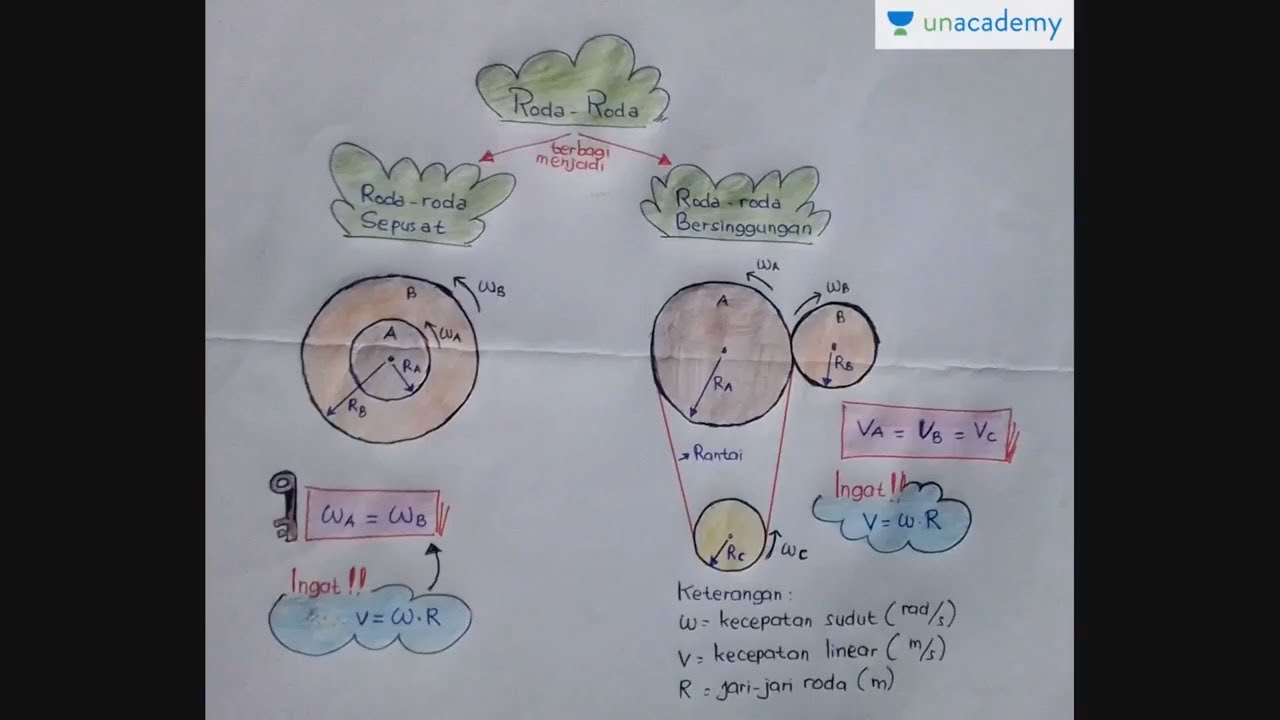 unacademy
Roda-Roda
terbagi
menjadi
Roda-roda
Sepusat
Roda-roda
Bersinggungan
B
ωB
A
ωA
RA
RB
ωA
A
ωB
B
RA
RB
Rantai
RC
ωC
VA = VB = VC
Ingat!!
V=ω.R
ωA = ωB
Ingat!!
V=ω.R
Keterangan:
ω= kecepatan sudut (rad/s)
V= kecepatan linear (m/s)
R = jari-jari roda (m)